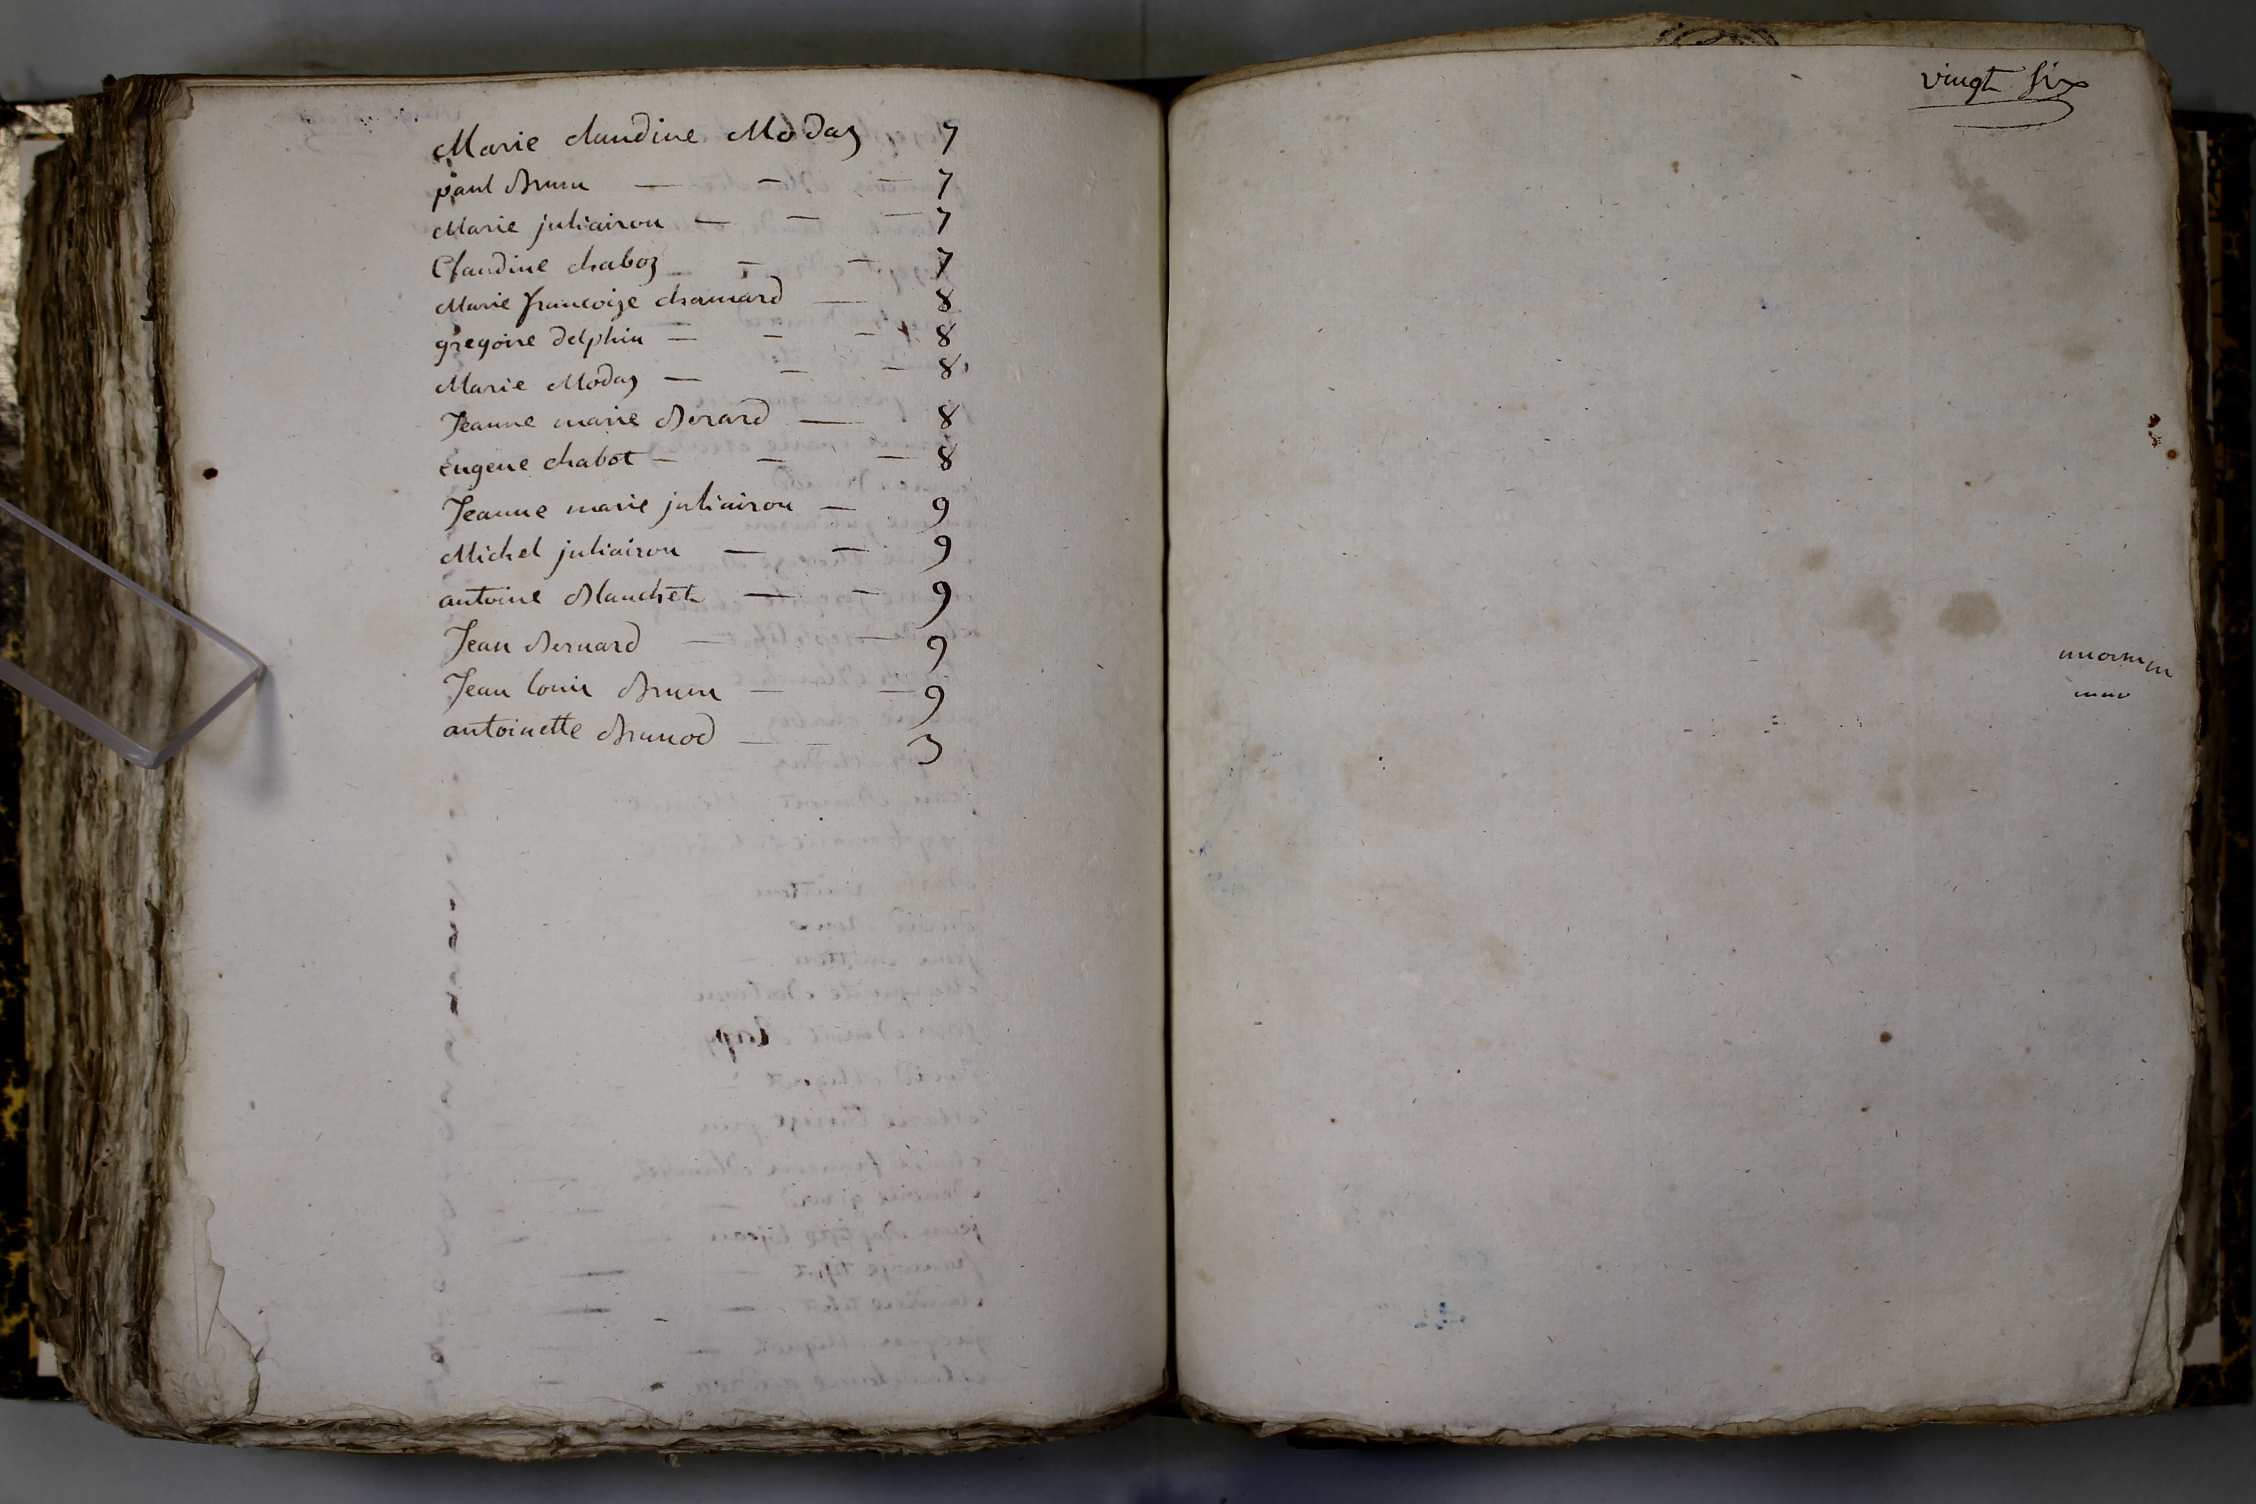 Marie claudine Modaz 7
paul Brun — — — 7
Marie juliairon — — — 7
Claudine chaboz — — 7
Marie françoize chamard — 8
gregoire delphin — — — 8
Marie Modaz — — — 8
Jeanne marie Berard — 8
eugene chabot — — — 8
Jeanne marie juliairon — 9
Michel juliairon — — 9
antoine Blanchet — — 9
Jean Bernard — — 9
Jean louis Brun — — 9
antoinette Brunod — — 3
vingt six